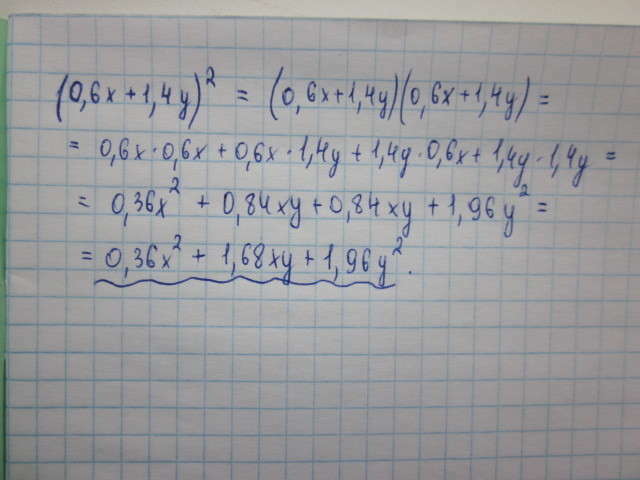 (0,6x+1,4y)² = (0,6x+1,4y)(0,6x+1,4y) =
= 0,6x·0,6x+0,6x·1,4y+1,4y·0,6x+1,4y·1,4y =
= 0,36x² + 0,84xy+0,84xy+1,96y² =
= 0,36x² + 1,68xy+1,96y².